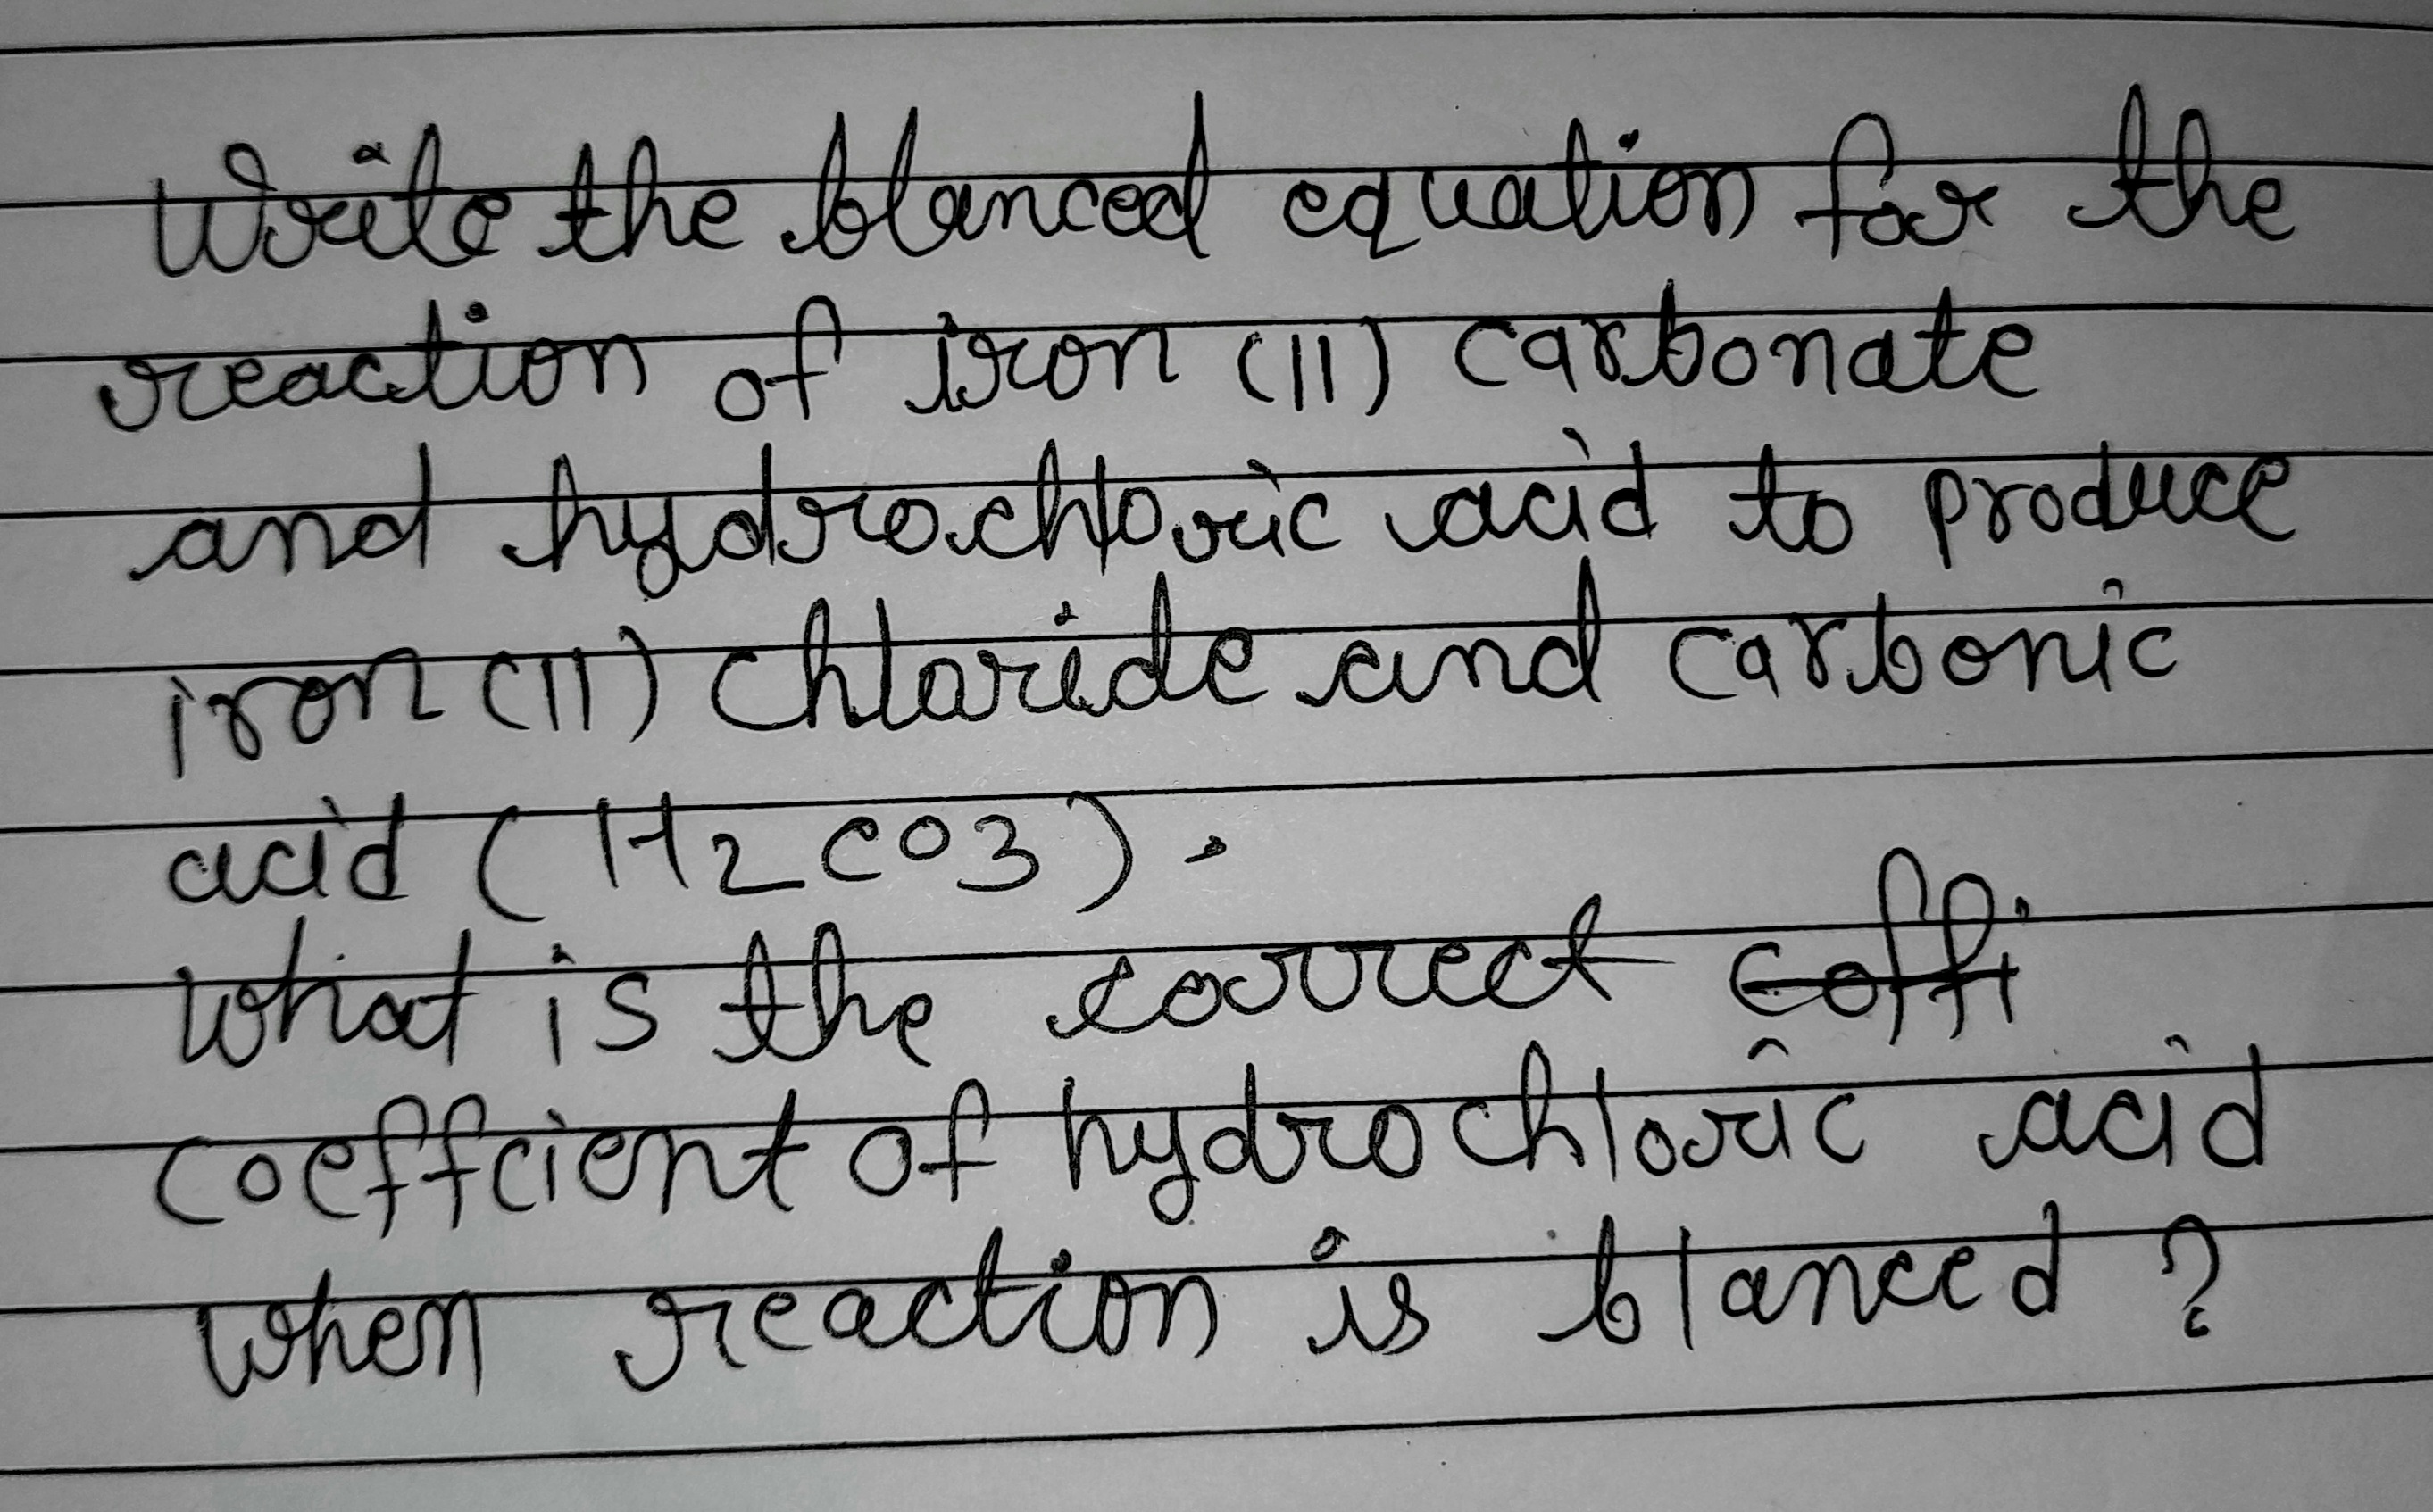 Write the blanced equation for the
reaction of iron (11) carbonate
and hydrochloric acid to produce
iron (11) chloride and carbonic
acid (H2CO3).
what is the correct coffi
coeffcient of hydrochloric acid
when reaction is blanced ?